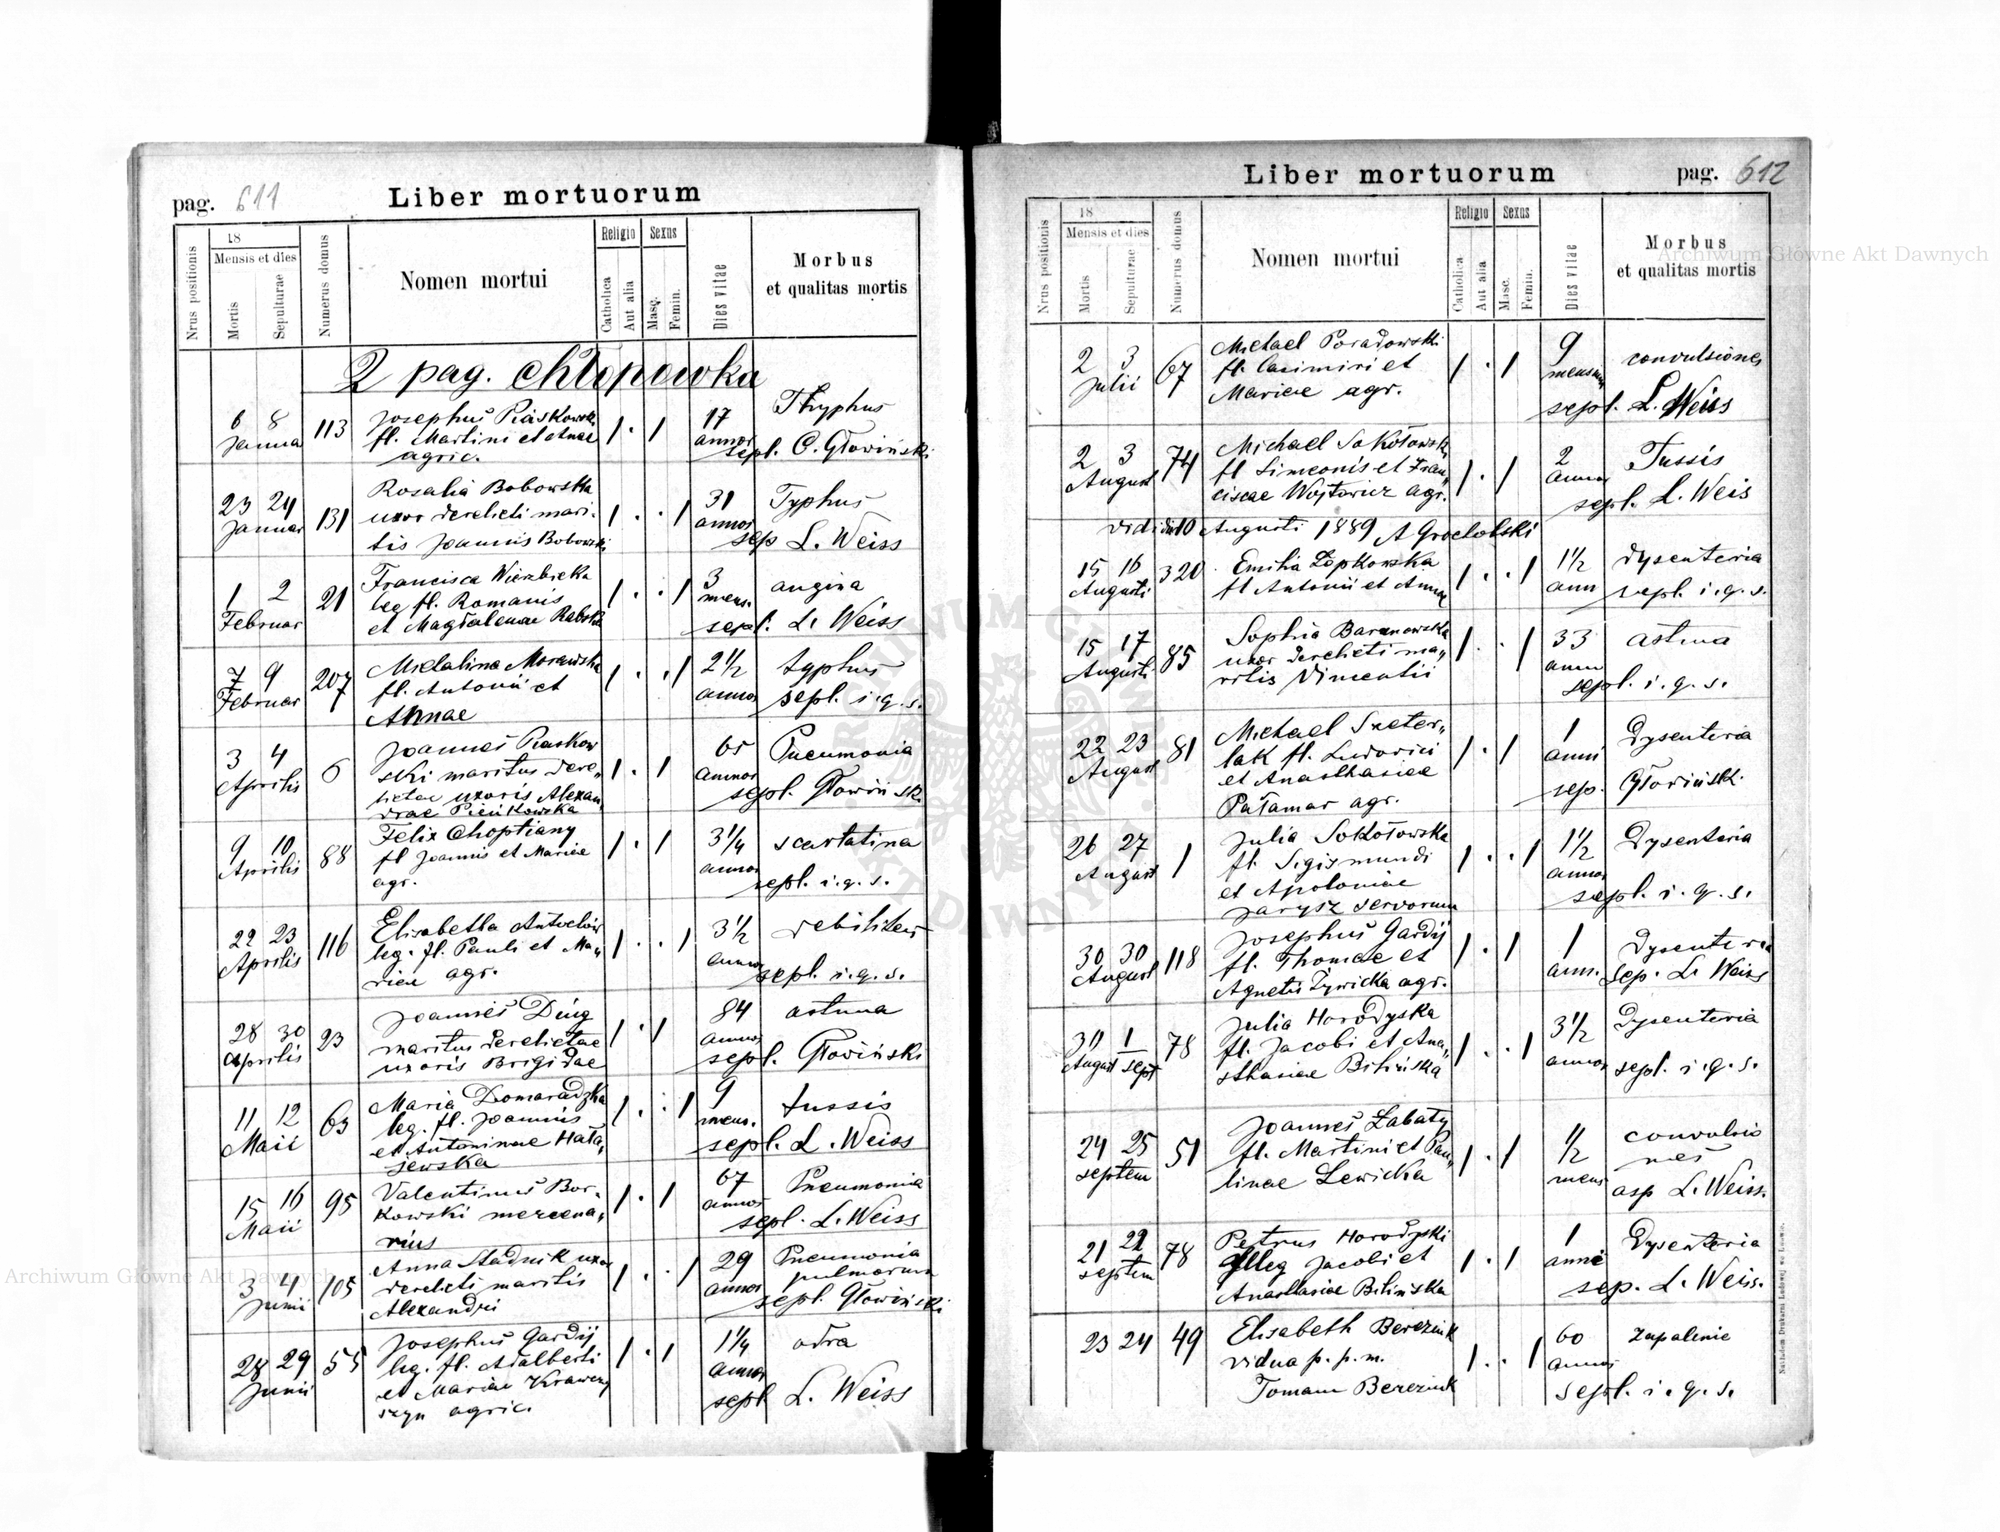 pag. 611
Liber mortuorum
Nrus positionis
18
Mensis et dies
Mortis
Sepulturae
Numerus domus
Nomen mortui
Religio
Catholica
Aut alia
Sexus
Masc.
Femin.
Dies vitae
Morbus
et qualitas mortis
2 pag. Chłopowka
6 8 113 Josephus Piaskowski 1 . 1 17 Thyphus
Janua fl. Martini et Annae annor
agric. sepl. C. Głowiński
23 24 131 Rosalia Bobowska 1 . . 1 31 Typhus
Januar uxor derelicti mari- annor
tis Joannis Bobowski sep L. Weiss
1 2 21 Francisca Wierzbicka 1 . . 1 3 angina
Februar leg fl. Romanis mens.
et Magdalenae Rabska sepl. L. Weiss
7 9 207 Michalina Morawska 1 . . 1 2 1/2 typhus
Februar fl. Antonii et annor sepl. i. q. s.
Annae
3 4 6 Joannes Piaskow 1 . 1 65 Pneumonia
Aprilis ski maritus dere„ annor
lictae uxoris Alexan sepl. Głowiński
drae Pieńkowska
9 10 88 Felix Choptiany 1 . 1 3 1/4 scarlatina
Aprilis fl Joannis et Mariae annor
agr. sepl. i. q. s.
22 23 116 Elisabetha 1 . . 1 3 1/2
Aprilis leg. fl. Pauli et Ma„ annor
riae agr. sepl. i. q. s.
28 30 23 Joannes Ding 1 . 1 84 astma
Aprilis maritus derelictae annor
uxoris Brigidae sepl. Głowiński
11 12 63 Maria Domaradzka 1 . . 1 9 tussis
Maii leg. fl. Joannis mens.
et Antoninae Hała„ sepl. L. Weiss
sewska
15 16 95 Valentinus Bor- 1 . 1 67 Pneumonia
Maii kowski mercena„ annor
rius sepl. L. Weiss
3 4 105 Anna Stadnik uxor 1 . . 1 29 Pneumonia
Junii derelicti maritis annor pulmorum
Alexandri sepl. Głowiński
28 29 55 Josephus Gardij 1 . 1 1 1/4 odra
Junii leg. fl. Adalberti annor
et Mariae Krawcy sepl L. Weiss
szyn agric.
Liber mortuorum
pag. 612
Nrus positionis
18
Mensis et dies
Mortis
Sepulturae
Numerus domus
Nomen mortui
Religio
Catholica
Aut alia
Sexus
Masc.
Femin.
Dies vitae
Morbus
et qualitas mortis
2 3 67 Michael Poradowski 1 . 1 9 convulsiones
Julii fl. Casimiri et mensium
Mariae agr. sepl. L. Weiss
2 3 74 Michael Sokołowski 1 . 1 2 Tussis
August fl Simeonis et Fran„ annor
ciscae Wojtowicz agr. sepl. L. Weis
vidi die 10 Augusti 1889 A Grocholski
15 16 320 Emilia Zopkowska 1 . . 1 1 1/2 dysenteria
Augusti fl Antonii et Annae ann sepl. i. q. s.
15 17 85 Sophia Baranowska 1 . . 1 33 astma
Augusti uxor derelicti ma„ annor
ritis Vincentii sepl. i. q. s.
22 23 81 Michael Szeter„ 1 . 1 1 Dysenteria
August lak fl. Ludovici anni
et Anasthasiae sep. Głowiński
Pałamar agr.
26 27 1 Julia Sokołowska 1 . . 1 1 1/2 Dysenteria
August fl. Sigismundi annor
et Apoloniae sepl. i. q. s.
Jarysz servorum
30 30 118 Josephus Gardij 1 . 1 1 Dysenteria
August fl. Thomae et ann. sep. L. Weiss
Agnetis Żywicka agr.
31 1 78 Julia Horodyska 1 . . 1 3 1/2 Dysenteria
August sept fl. Jacobi et Ana„ annor
sthasiae Bilińska sepl. i. q. s.
24 25 51 Joannes Łabaty 1 . 1 1/2 convulsio
septem fl. Martini et Pau„ mens nes
linae Lewicka asp L. Weiss.
21 22 78 Petrus Horodyski 1 . 1 1 Dysenteria
septem fl leg Jacobi et anni
Anasthasiae Bilińska sep. L. Weiss.
23 24 49 Elisabeth Bereziuk 1 . . 1 60 zapalenie
vidua p. p. m. annor
Tomam Bereziuk sepl. i. q. s.
Nakładem Drukarni Ludowej we Lwowie.
Archiwum Główne Akt Dawnych
Archiwum Główne Akt Dawnych
ARCHIWUM GŁÓWNE AKT DAWNYCH